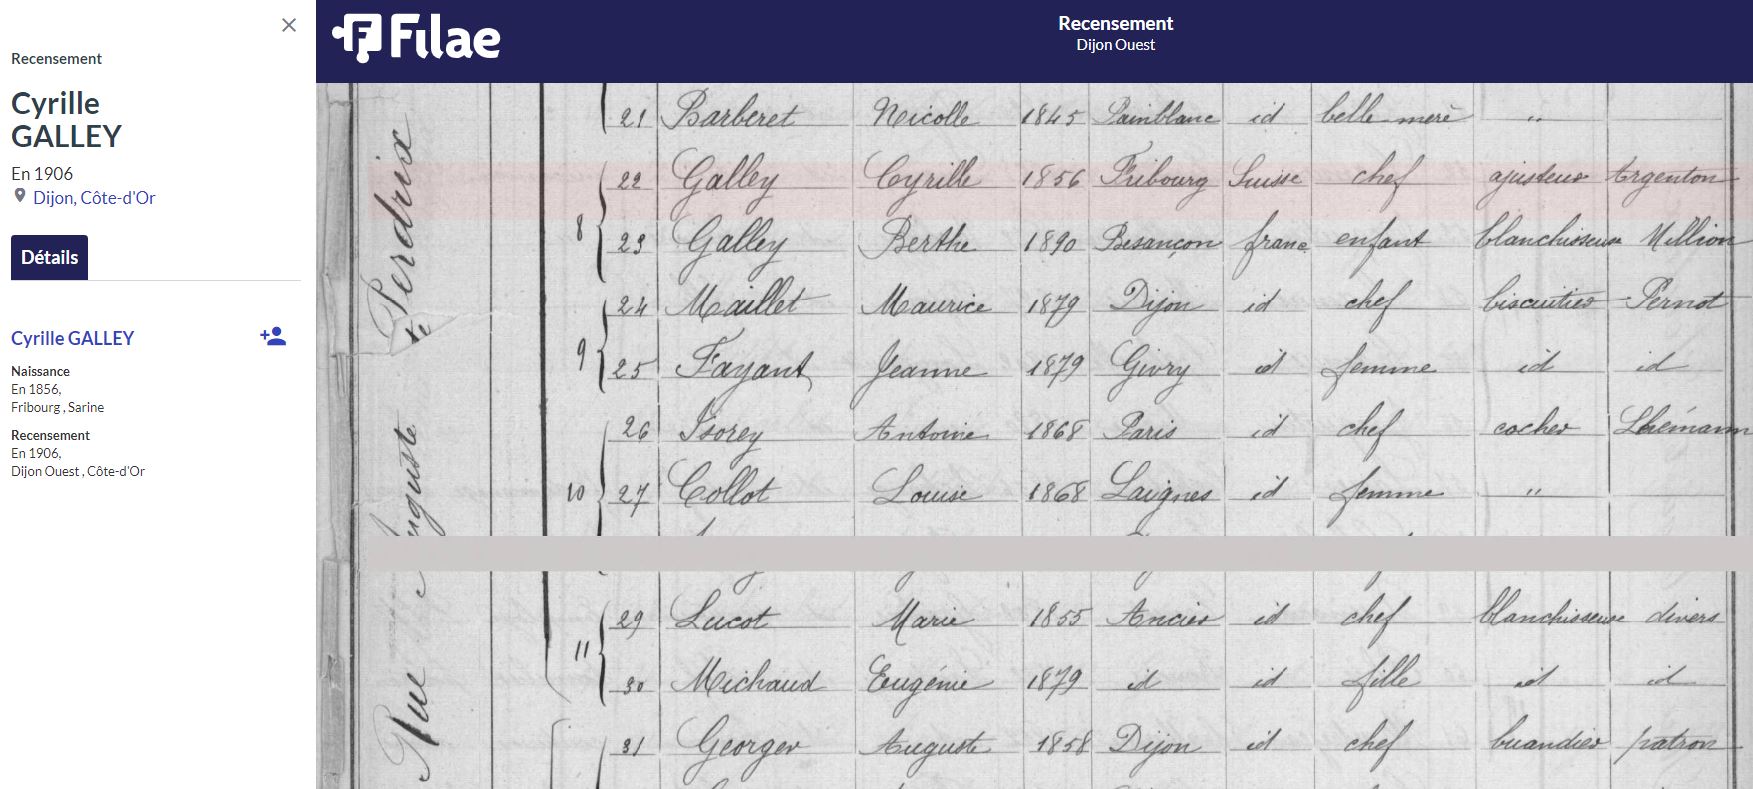 Recensement
Cyrille
GALLEY
En 1906
Dijon, Côte-d'Or
Détails
Cyrille GALLEY
Naissance
En 1856,
Fribourg , Sarine
Recensement
En 1906,
Dijon Ouest , Côte-d'Or
Filae
Recensement
Dijon Ouest
Rue Auguste Perdrix
21 Barberet Nicolle 1845 Painblanc id belle-mère "
8
22 Galley Cyrille 1856 Fribourg Suisse chef ajusteur Argenton
23 Galley Berthe 1890 Besançon franc enfant blanchisseuse Million
9
24 Maillet Maurice 1879 Dijon id chef biscuitier Pernot
25 Fayant Jeanne 1879 Givry id femme id id
10
26 Isorey Antoine 1868 Paris id chef cocher
27 Collot Louise 1868 Laignes id femme "
11
29 Lucot Marie 1855 Ancier id chef blanchisseuse divers
30 Michaud Eugénie 1879 id id fille id id
31 Georger Auguste 1858 Dijon id chef buandier patron